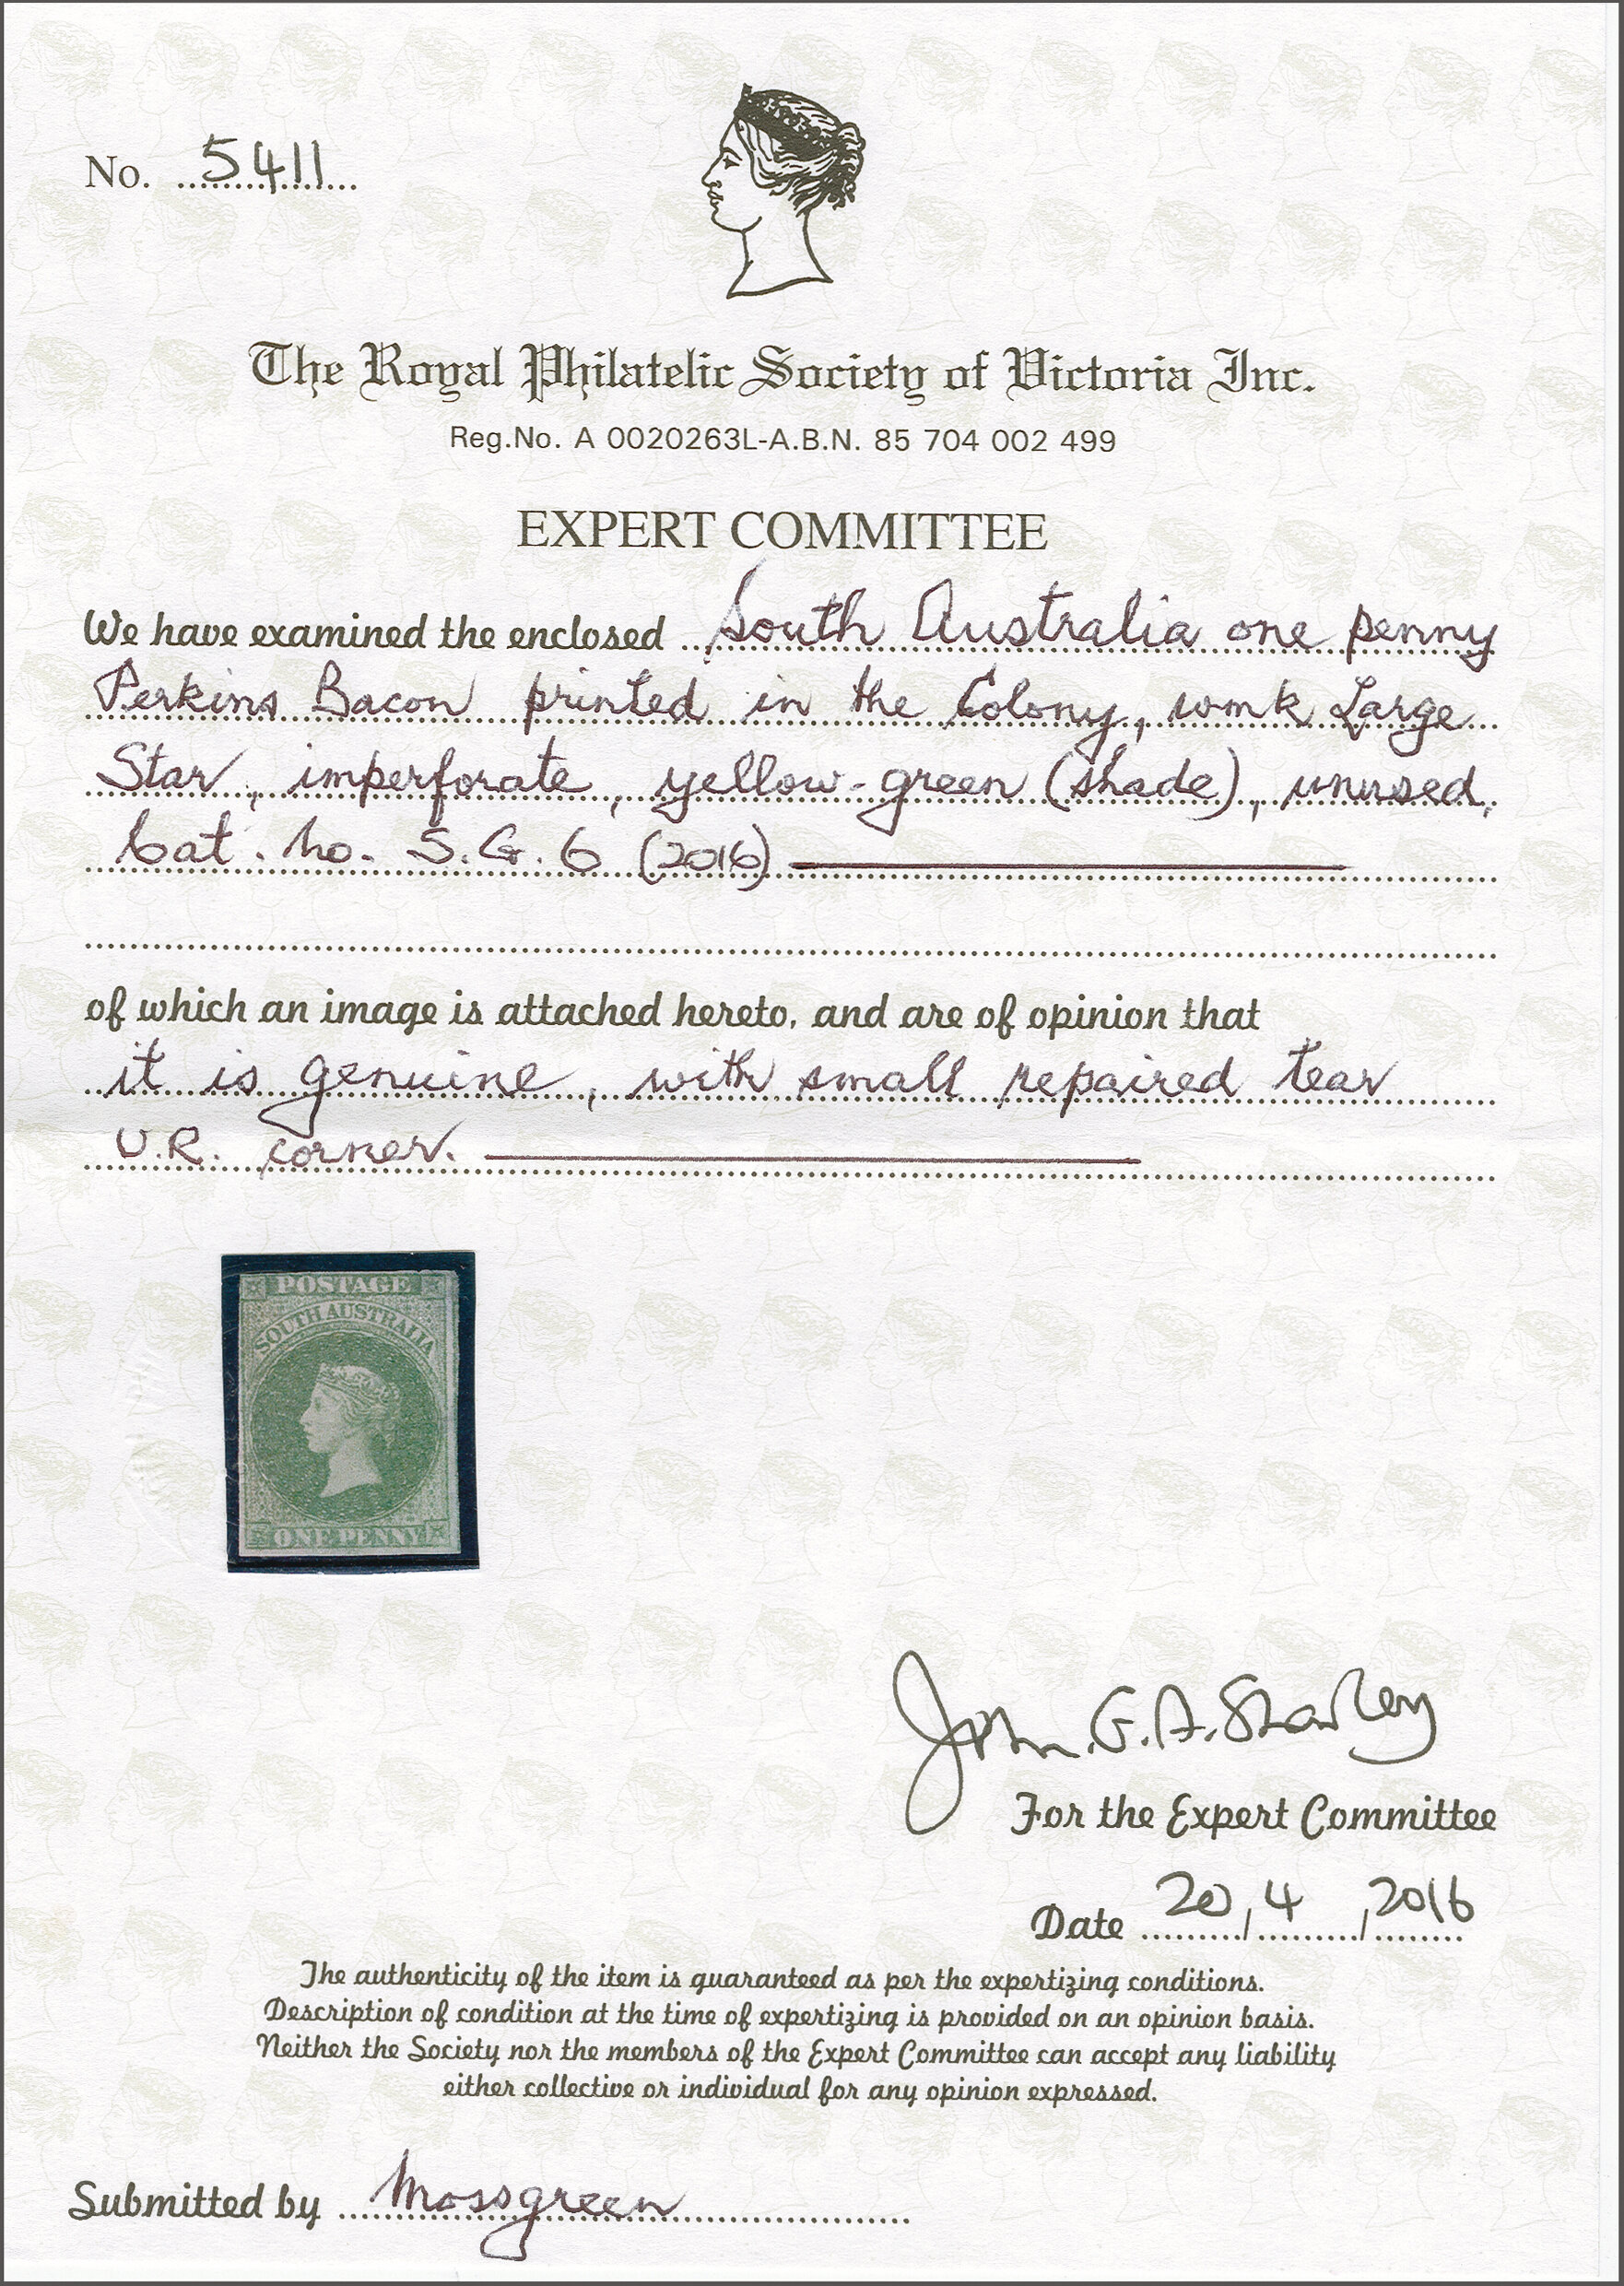 No. 5411
The Royal Philatelic Society of Victoria Inc.
Reg.No. A 0020263L-A.B.N. 85 704 002 499
EXPERT COMMITTEE
We have examined the enclosed South Australia one penny
Perkins Bacon printed in the Colony, wmk Large
Star, imperforate, yellow-green (shade), unused,
Cat. No. S.G. 6 (2016)
of which an image is attached hereto, and are of opinion that
it is genuine, with small repaired tear
U.R. corner.
POSTAGE
SOUTH AUSTRALIA
ONE PENNY
John. G. A.
For the Expert Committee
Date 20/4/2016
The authenticity of the item is guaranteed as per the expertizing conditions.
Description of condition at the time of expertizing is provided on an opinion basis.
Neither the Society nor the members of the Expert Committee can accept any liability
either collective or individual for any opinion expressed.
Submitted by Mossgreen